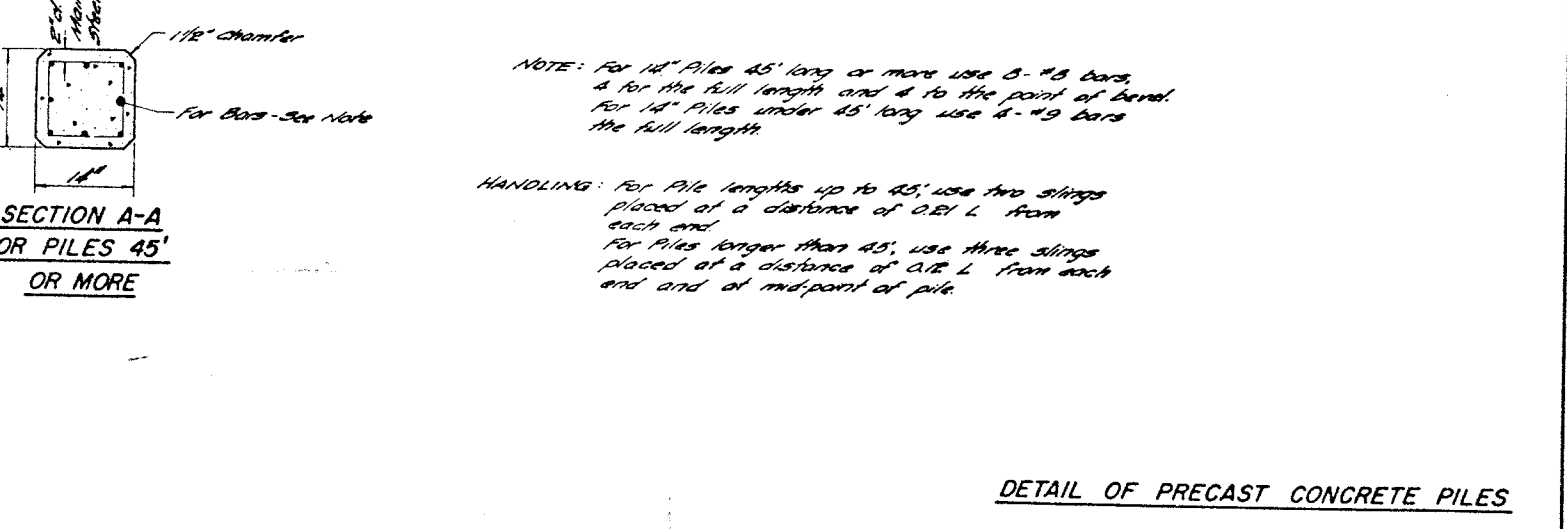 2" cl.
Main
Steel
1 1/2" chamfer
For Bars - See Note
14"
SECTION A-A
OR PILES 45'
OR MORE
NOTE: For 14" Piles 45' long or more use 8-#8 bars,
4 for the full length and 4 to the point of bevel.
For 14" Piles under 45' long use 4-#9 bars
the full length.
HANDLING: For Pile lengths up to 45', use two slings
placed at a distance of 0.21 L from
each end.
For Piles longer than 45', use three slings
placed at a distance of 0.12 L from each
end and at mid-point of pile.
DETAIL OF PRECAST CONCRETE PILES